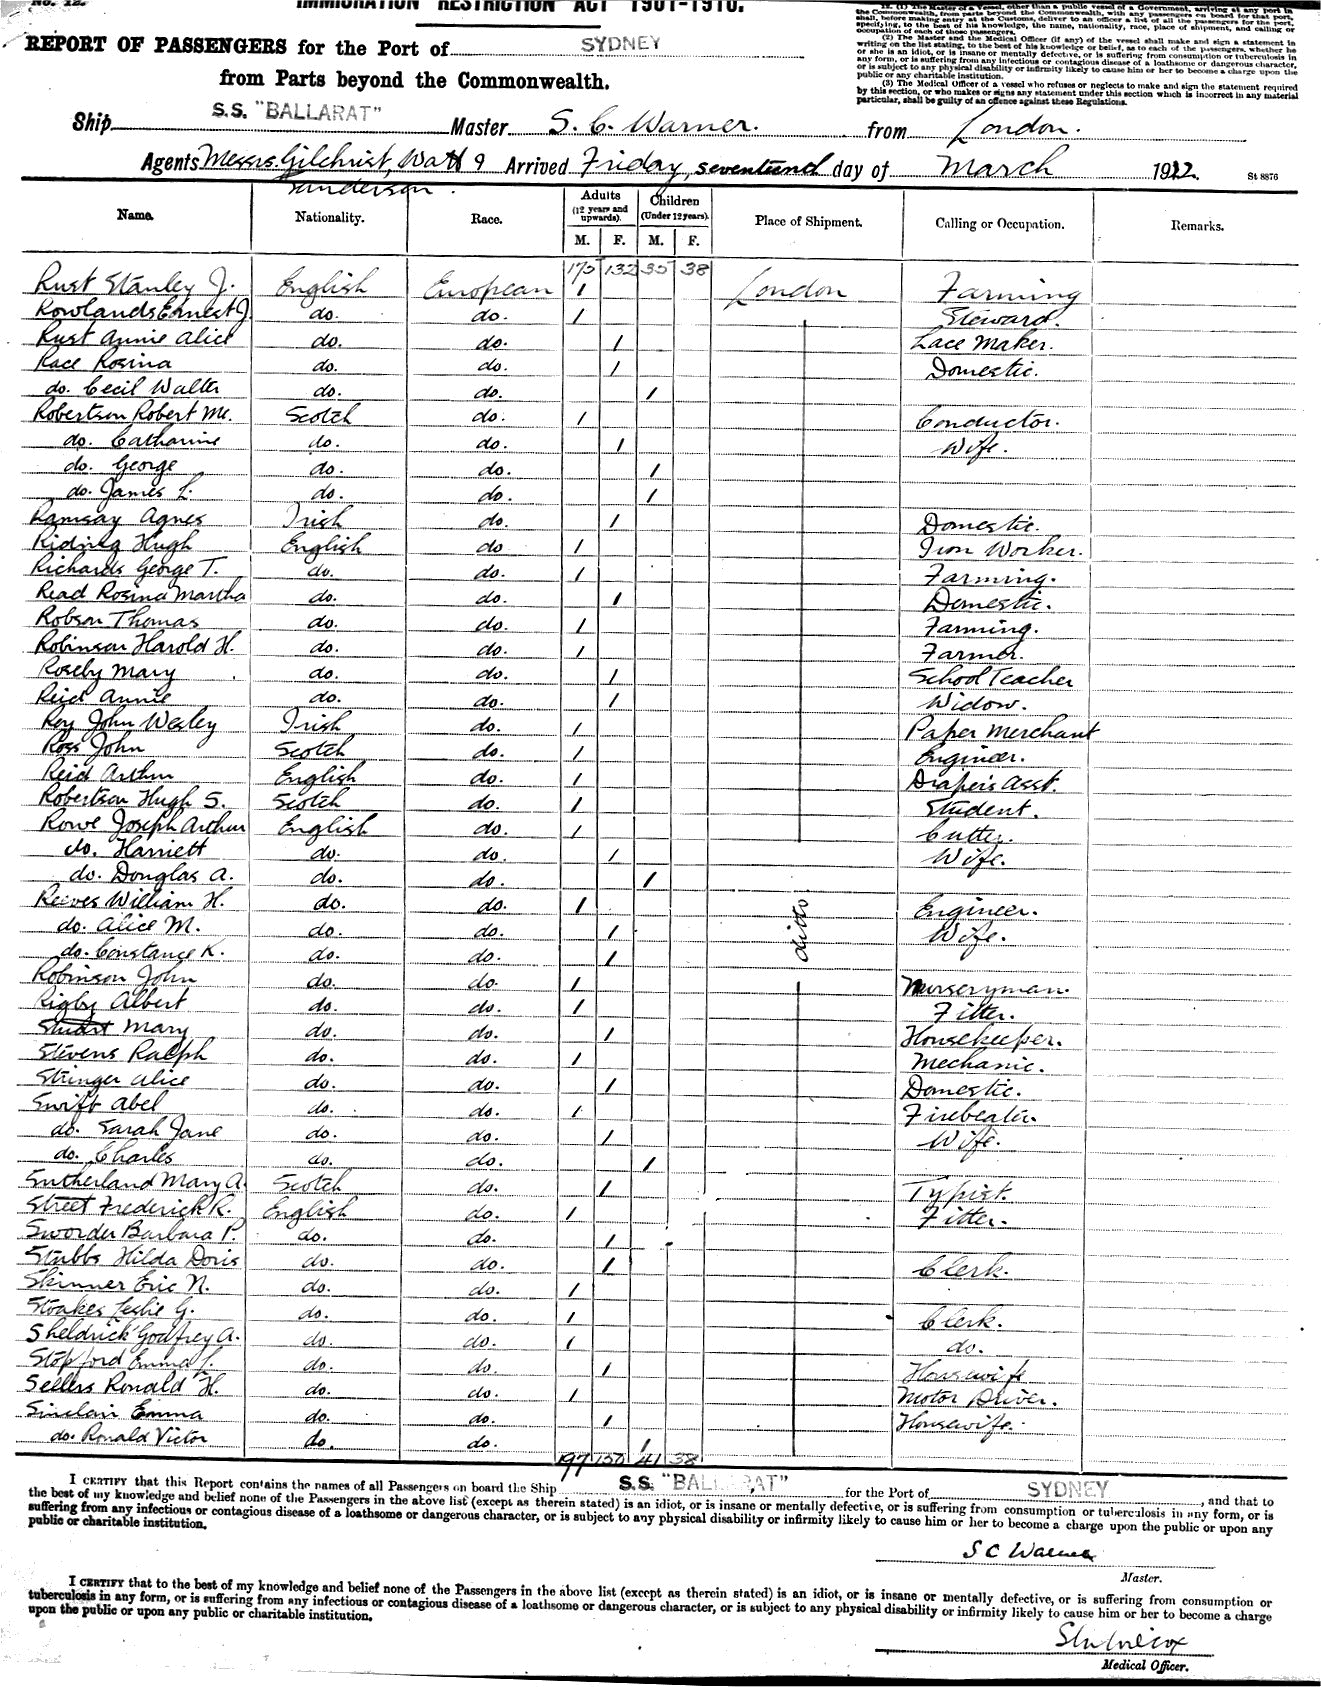 No. 12.
IMMIGRATION RESTRICTION ACT 1901-1910.
REPORT OF PASSENGERS for the Port of SYDNEY
from Parts beyond the Commonwealth.
12. (1) The Master of a Vessel, other than a public vessel of a Government, arriving at any port in
the Commonwealth, from parts beyond the Commonwealth, with any passengers on board for that port,
shall, before making entry at the Customs, deliver to an officer a list of all the passengers for the port,
specifying, to the best of his knowledge, the name, nationality, race, place of shipment, and calling or
occupation of each of those passengers.
(2) The Master and the Medical Officer (if any) of the vessel shall make and sign a statement in
writing on the list stating, to the best of his knowledge or belief, as to each of the passengers, whether he
or she is an idiot, or is insane or mentally defective, or is suffering from consumption or tuberculosis in
any form, or is suffering from any infectious or contagious disease of a loathsome or dangerous character,
or is subject to any physical disability or infirmity likely to cause him or her to become a charge upon the
public or any charitable institution.
(3) The Medical Officer of a vessel who refuses or neglects to make and sign the statement required
by this section, or who makes or signs any statement under this section which is incorrect in any material
particular, shall be guilty of an offence against these Regulations.
Ship S.S. "BALLARAT" Master S. C. Warner. from London.
Agents Messrs. Gilchrist, Watt & Arrived Friday, seventeenth day of March 1922. St 8876
Sanderson.
Name. Nationality. Race. Adults (12 years and upwards). Children (Under 12 years). Place of Shipment. Calling or Occupation. Remarks.
M. F. M. F.
175 132 35 38
Rust Stanley J. English European 1 London Farming
Rowlands Ernest J. do. do. 1 Steward.
Rust Annie Alice do. do. 1 Lace Maker.
Race Rosina do. do. 1 Domestic.
do. Cecil Walter do. do. 1
Robertson Robert Mc. Scotch do. 1 Conductor.
do. Catharine do. do. 1 Wife.
do. George do. do. 1
do. James L. do. do. 1
Ramsay Agnes Irish do. 1 Domestic.
Riding Hugh English do 1 Iron Worker.
Richards George T. do. do. 1 Farming.
Read Rosina Martha do. do. 1 Domestic.
Robson Thomas do. do. 1 Farming.
Robinson Harold H. do. do. 1 Farmer.
Roseby Mary do. do. 1 School Teacher
Reid Annie do. do. 1 Widow.
Roy John Wesley Irish do. 1 Paper Merchant
Ross John Scotch do. 1 Engineer.
Reid Arthur English do. 1 Draper's Asst.
Robertson Hugh S. Scotch do. 1 Student.
Rowe Joseph Arthur English do. 1 Cutter.
do. Harriett do. do. 1 Wife.
do. Douglas A. do. do. 1
Reeves William H. do. do. 1 ditto. Engineer.
do. Alice M. do. do. 1 Wife.
do. Constance K. do. do. 1
Robinson John do. do. 1 Nurseryman.
Rigby Albert do. do. 1 Fitter.
Stuart Mary do. do. 1 Housekeeper.
Stevens Ralph do. do. 1 Mechanic.
Stringer Alice do. do. 1 Domestic.
Swift Abel do. do. 1 Firebeater.
do. Sarah Jane do. do. 1 Wife.
do. Charles do. do. 1
Sutherland Mary A. Scotch do. 1 Typist.
Street Frederick R. English do. 1 Fitter.
Sworder Barbara P. do. do. 1
Stubbs Hilda Doris do. do. 1 Clerk.
Skinner Eric N. do. do. 1
Stoakes Leslie G. do. do. 1 Clerk.
Sheldrick Godfrey A. do. do. 1 do.
Stopford Emma L. do. do. 1 Housewife
Sellers Ronald H. do. do. 1 Motor Driver.
Sinclair Emma do. do. 1 Housewife.
do. Ronald Victor do. do. 1
197 150 41 38
I CERTIFY that this Report contains the names of all Passengers on board the Ship S.S. "BALLARAT" for the Port of SYDNEY, and that to
the best of my knowledge and belief none of the Passengers in the above list (except as therein stated) is an idiot, or is insane or mentally defective, or is suffering from consumption or tuberculosis in any form, or is
suffering from any infectious or contagious disease of a loathsome or dangerous character, or is subject to any physical disability or infirmity likely to cause him or her to become a charge upon the public or upon any
public or charitable institution.
S C Warner
Master.
I CERTIFY that to the best of my knowledge and belief none of the Passengers in the above list (except as therein stated) is an idiot, or is insane or mentally defective, or is suffering from consumption or
tuberculosis in any form, or is suffering from any infectious or contagious disease of a loathsome or dangerous character, or is subject to any physical disability or infirmity likely to cause him or her to become a charge
upon the public or upon any public or charitable institution.
Medical Officer.